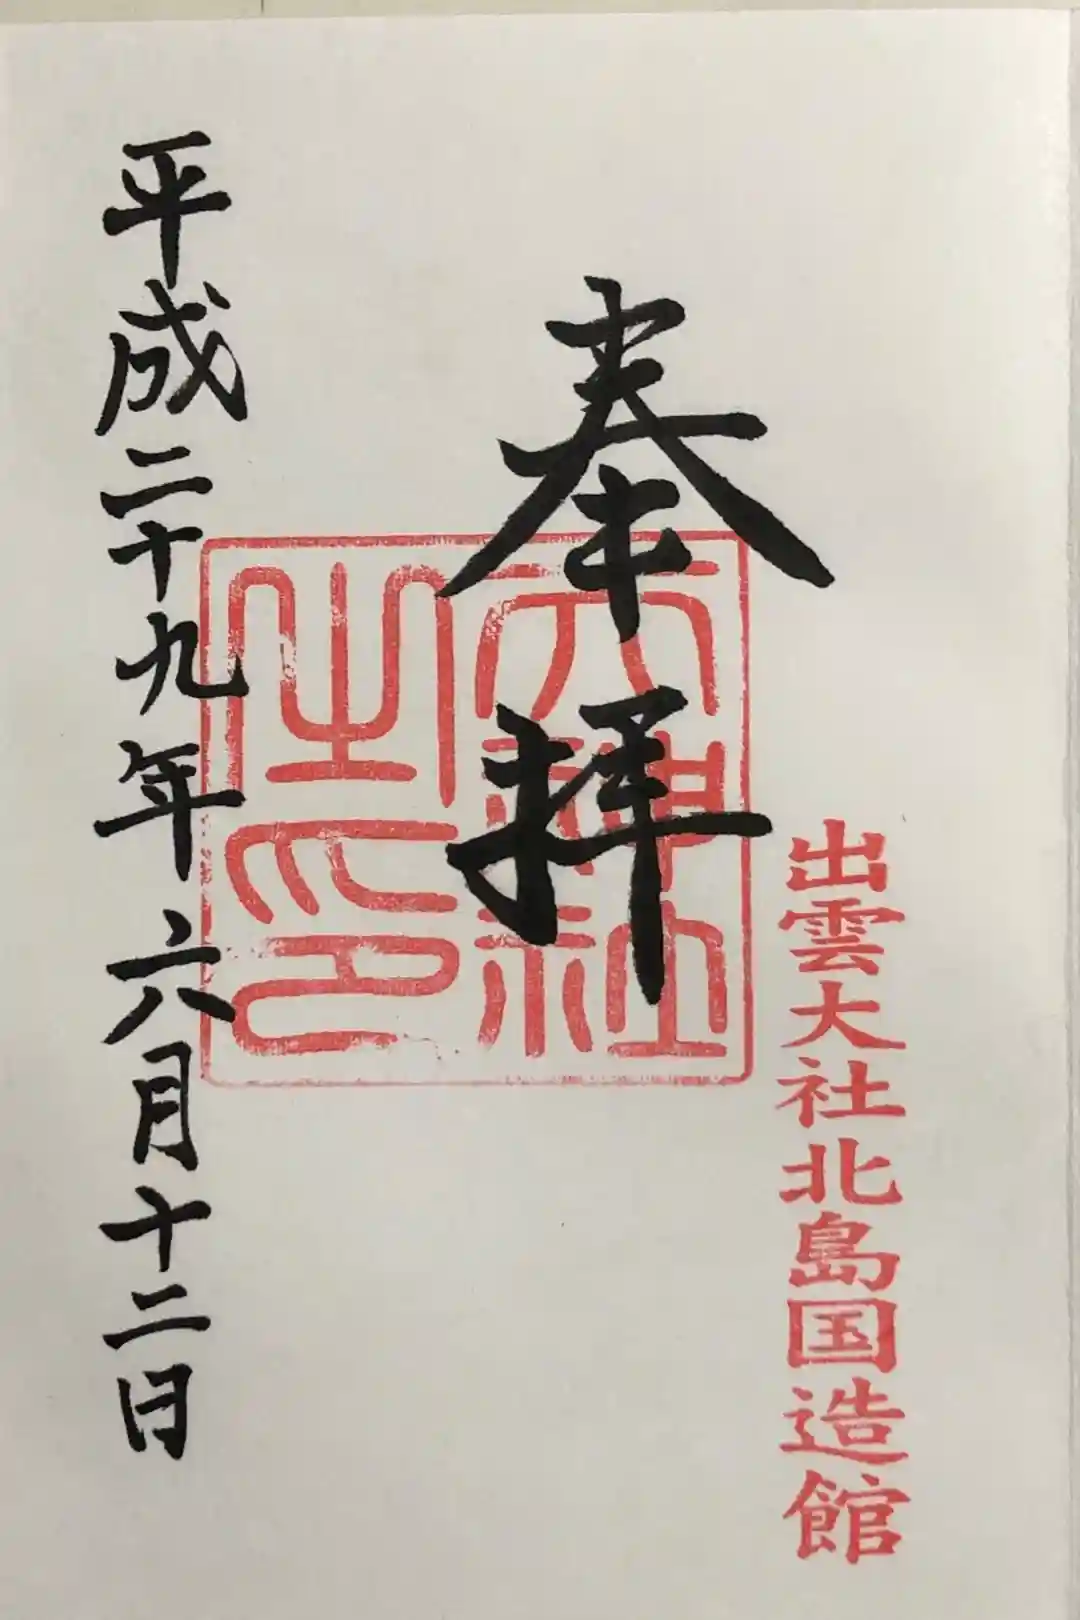 出雲大社北島国造館
奉拝
天神社之印
平成二十九年六月十二日